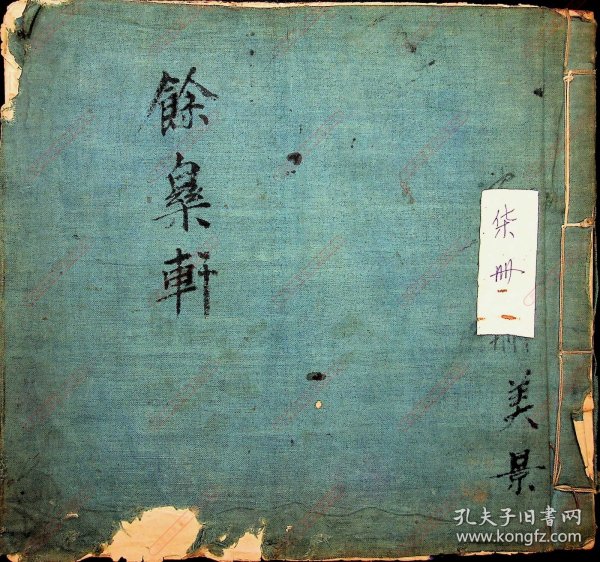 餘臯軒
柒册
册
美景
孔夫子旧書网
www.kongfz.com